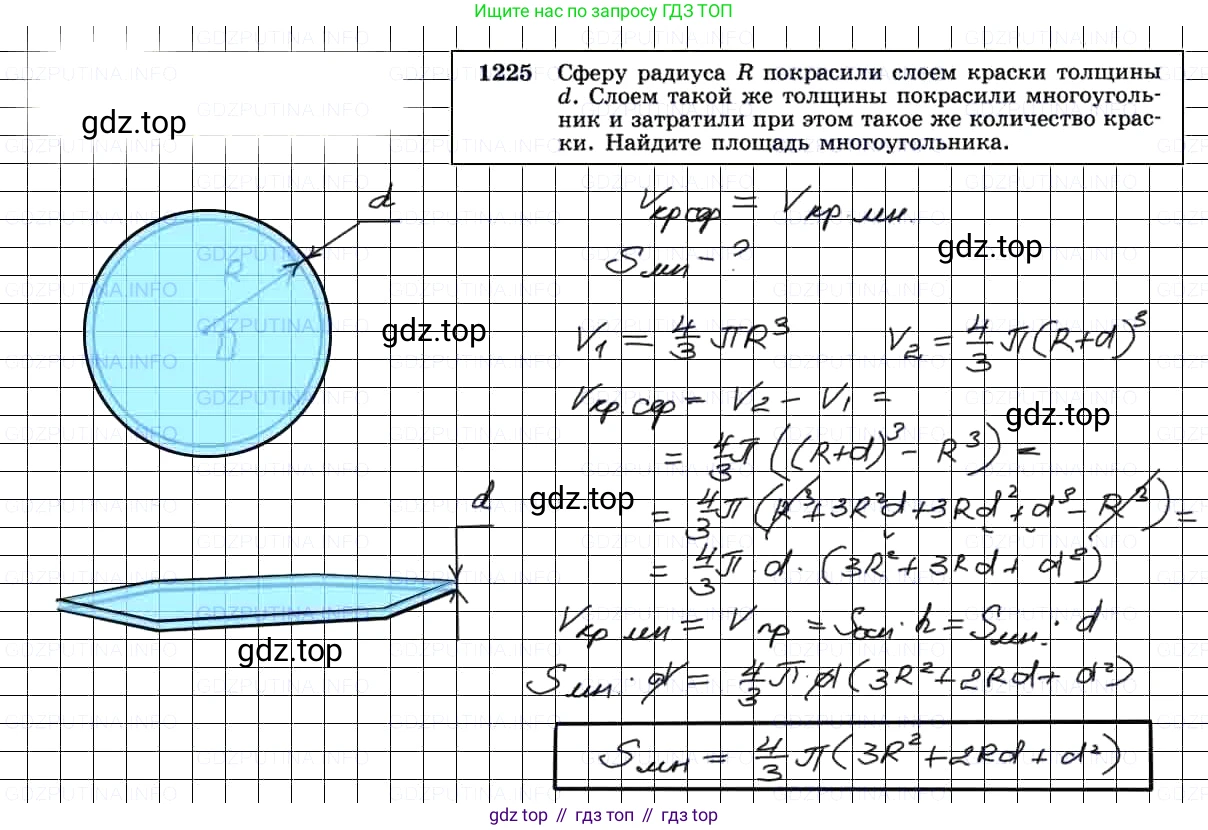 Ищите нас по запросу ГДЗ ТОП
1225 Сферу радиуса R покрасили слоем краски толщины
d. Слоем такой же толщины покрасили многоуголь-
ник и затратили при этом такое же количество крас-
ки. Найдите площадь многоугольника.
gdz.top
d
R
O
gdz.top
d
gdz.top
Vкр.сф = Vкр.мн.
Sмн - ?
gdz.top
V₁ = 4/3 πR³ V₂ = 4/3 π(R+d)³
Vкр.сф = V₂ - V₁ =
gdz.top
= 4/3 π((R+d)³ - R³) =
gdz.top
= 4/3 π(R³+3R²d+3Rd²+d³-R³) =
= 4/3 π·d·(3R²+3Rd+d²)
Vкр.мн = Vпр = Sосн·h = Sмн.·d
Sмн.·d = 4/3 π·d(3R²+2Rd+d²)
Sмн = 4/3 π(3R²+2Rd+d²)
gdz top // гдз топ // gdz top